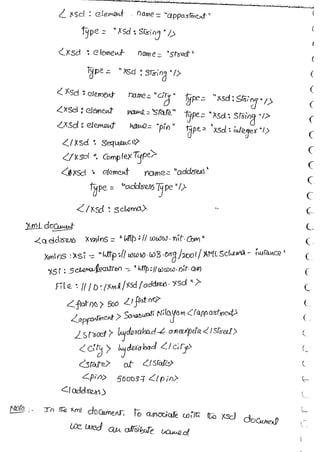 < xsd : element name = "appartment"
type = "xsd : string" />
< xsd : element name = "street"
type = "xsd : string" />
< xsd : element name = "city" type = "xsd : string" />
< xsd : element name = "state" type = "xsd : string" />
< xsd : element name = "pin" type = "xsd : integer" />
</ xsd : sequence>
</ xsd : complexType>
< xsd : element name = "address"
type = "addressType" />
</ xsd : schema>
XML document
<address xmlns = "http:// www. nit. com"
xmlns : xsi = "http:// www. w3.org /2001/ XMLSchema - instance"
xsi : schemaLocation = "http:// www.nit.com
File : /// D:/xml/xsd/address. xsd ">
<flat no> 500 </flat no>
<appartment> Saraswati Nilayam </appartment>
<street> hyderabad - ameerpete </street>
<city> hyderabad </city>
<state> at </state>
<pin> 500037 </pin>
</address>
Note :- In the xml document, to associate with the xsd document
we used an attribute named